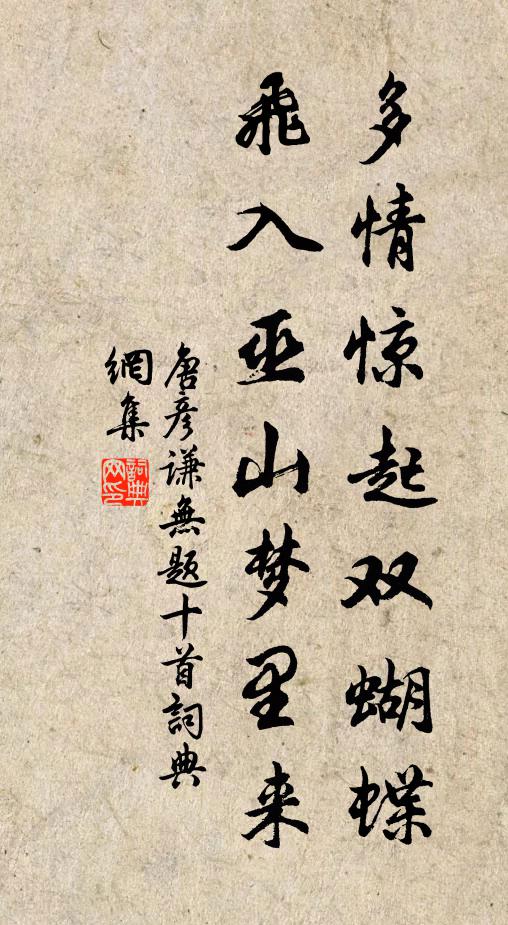 多情惊起双蝴蝶
飞入巫山梦里来
唐彦谦无题十首詞典
網集
詞典网印